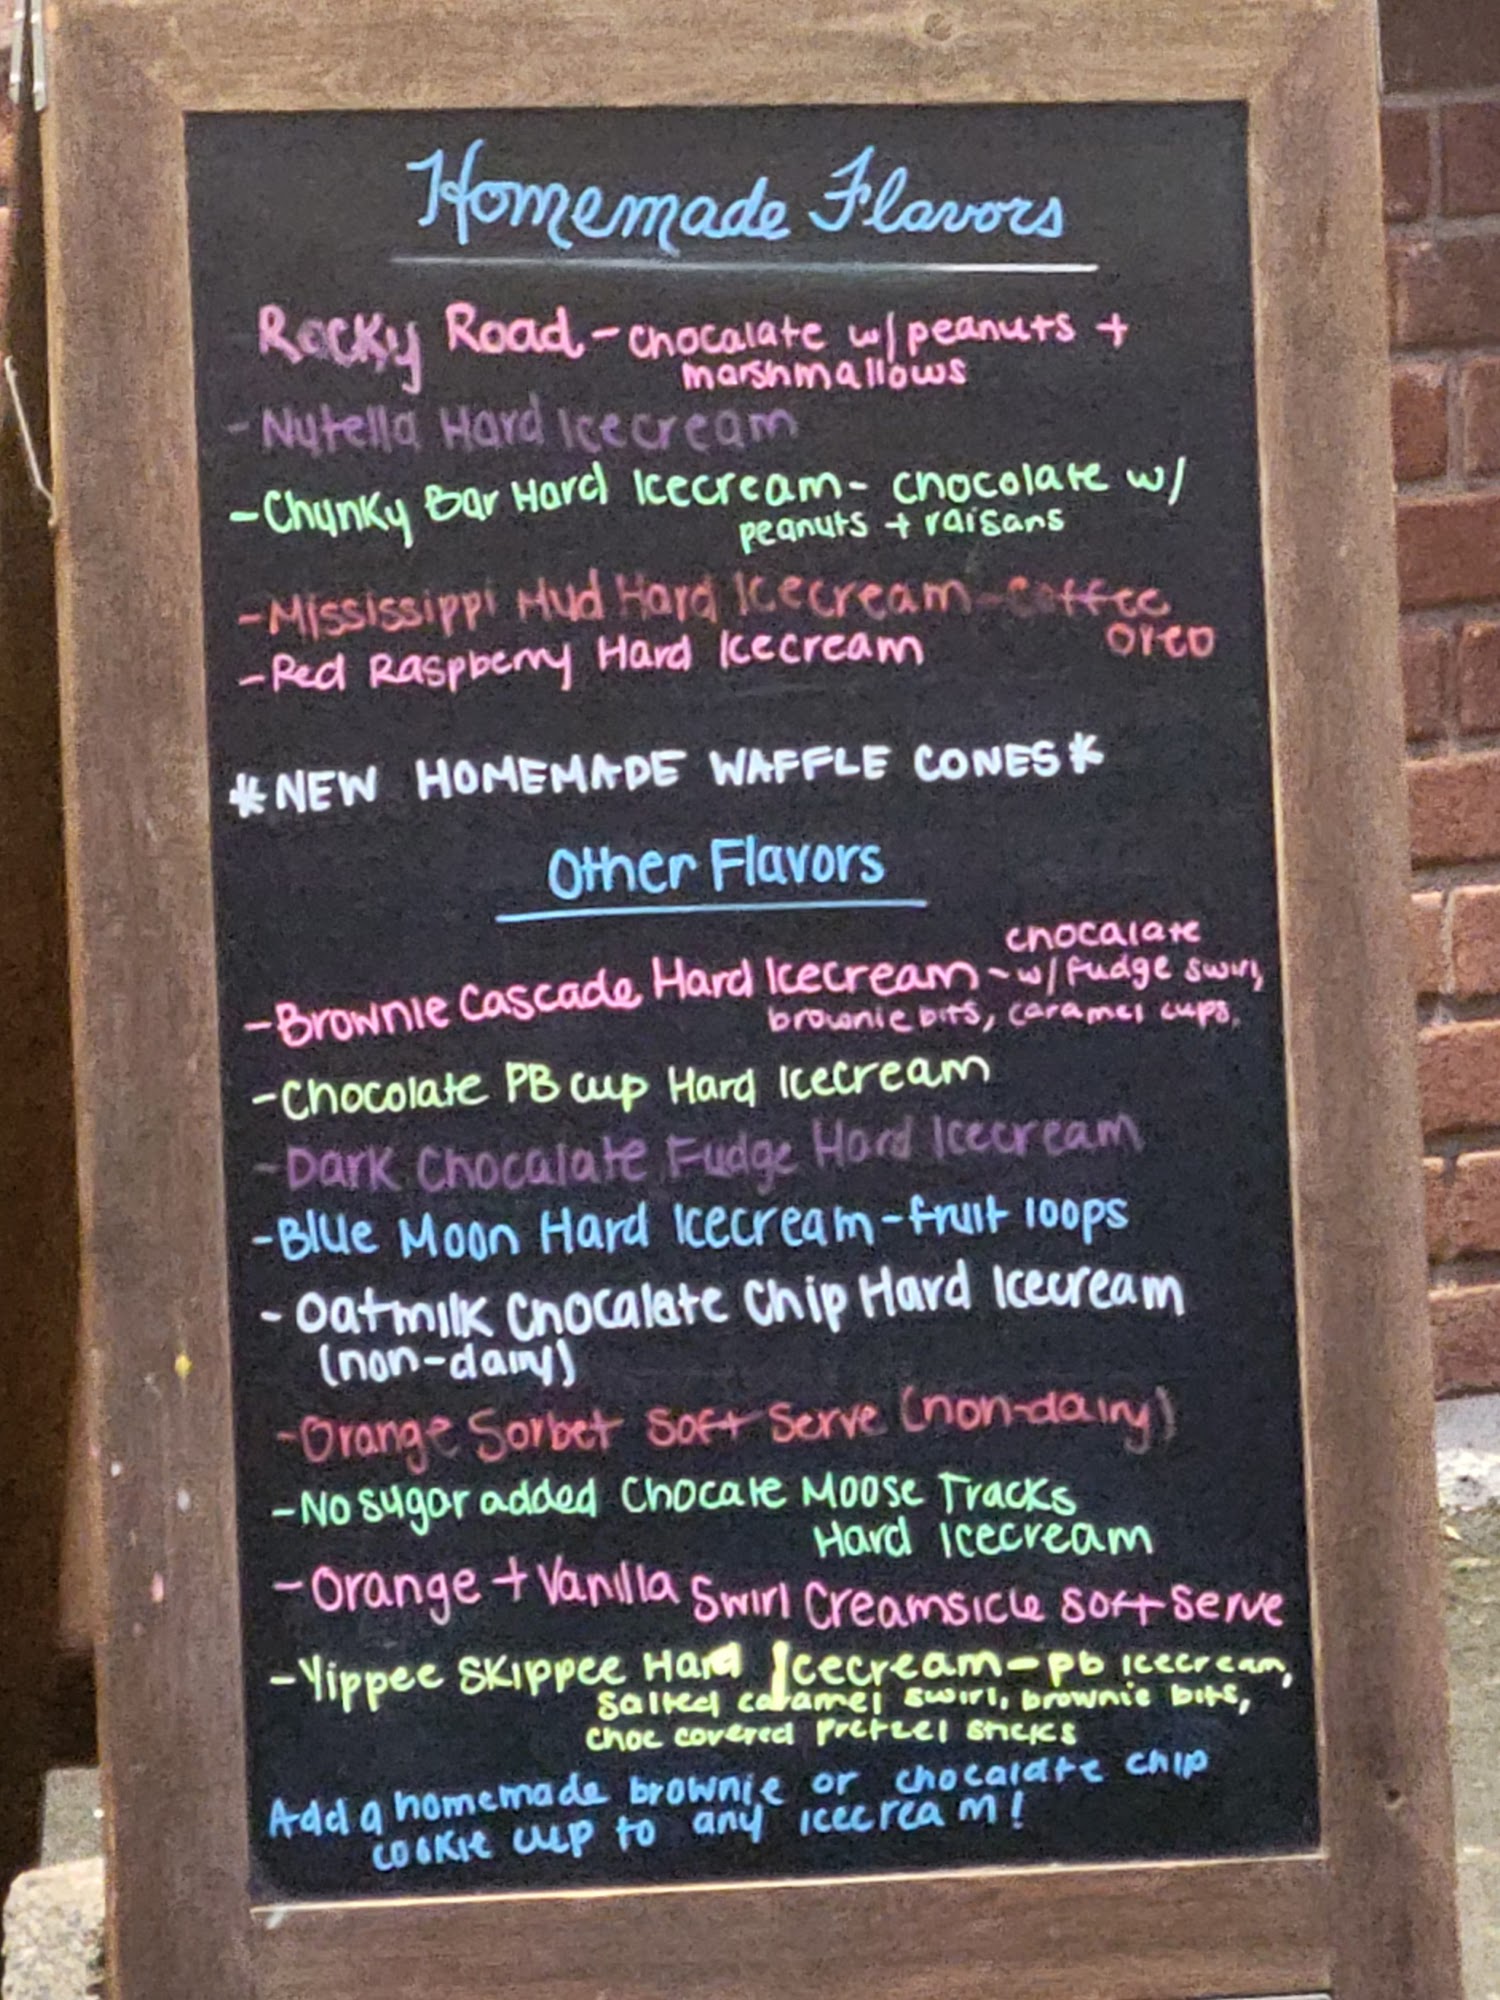 Homemade Flavors
Rocky Road - chocalate w/ peanuts +
marshmallows
- Nutella Hard Icecream
- Chunky Bar Hard Icecream - chocolate w/
peanuts + raisans
- Mississippi Mud Hard Icecream - coffee
oreo
- Red Raspberry Hard Icecream
*NEW HOMEMADE WAFFLE CONES*
Other Flavors
chocalate
- Brownie Cascade Hard Icecream - w/ fudge swirl,
brownie bits, caramel cups.
- Chocolate PB cup Hard Icecream
- Dark Chocalate Fudge Hard Icecream
- Blue Moon Hard Icecream - fruit loops
- Oatmilk Chocalate Chip Hard Icecream
(non-dairy)
- Orange Sorbet Soft Serve (non-dairy)
- No sugar added Chocate Moose Tracks
Hard Icecream
- Orange + Vanilla Swirl Creamsicle soft serve
- Yippee Skippee Hard Icecream - pb icecream,
salted caramel swirl, brownie bits,
choc covered pretzel sticks
Add a homemade brownie or chocalate chip
cookie cup to any icecream!